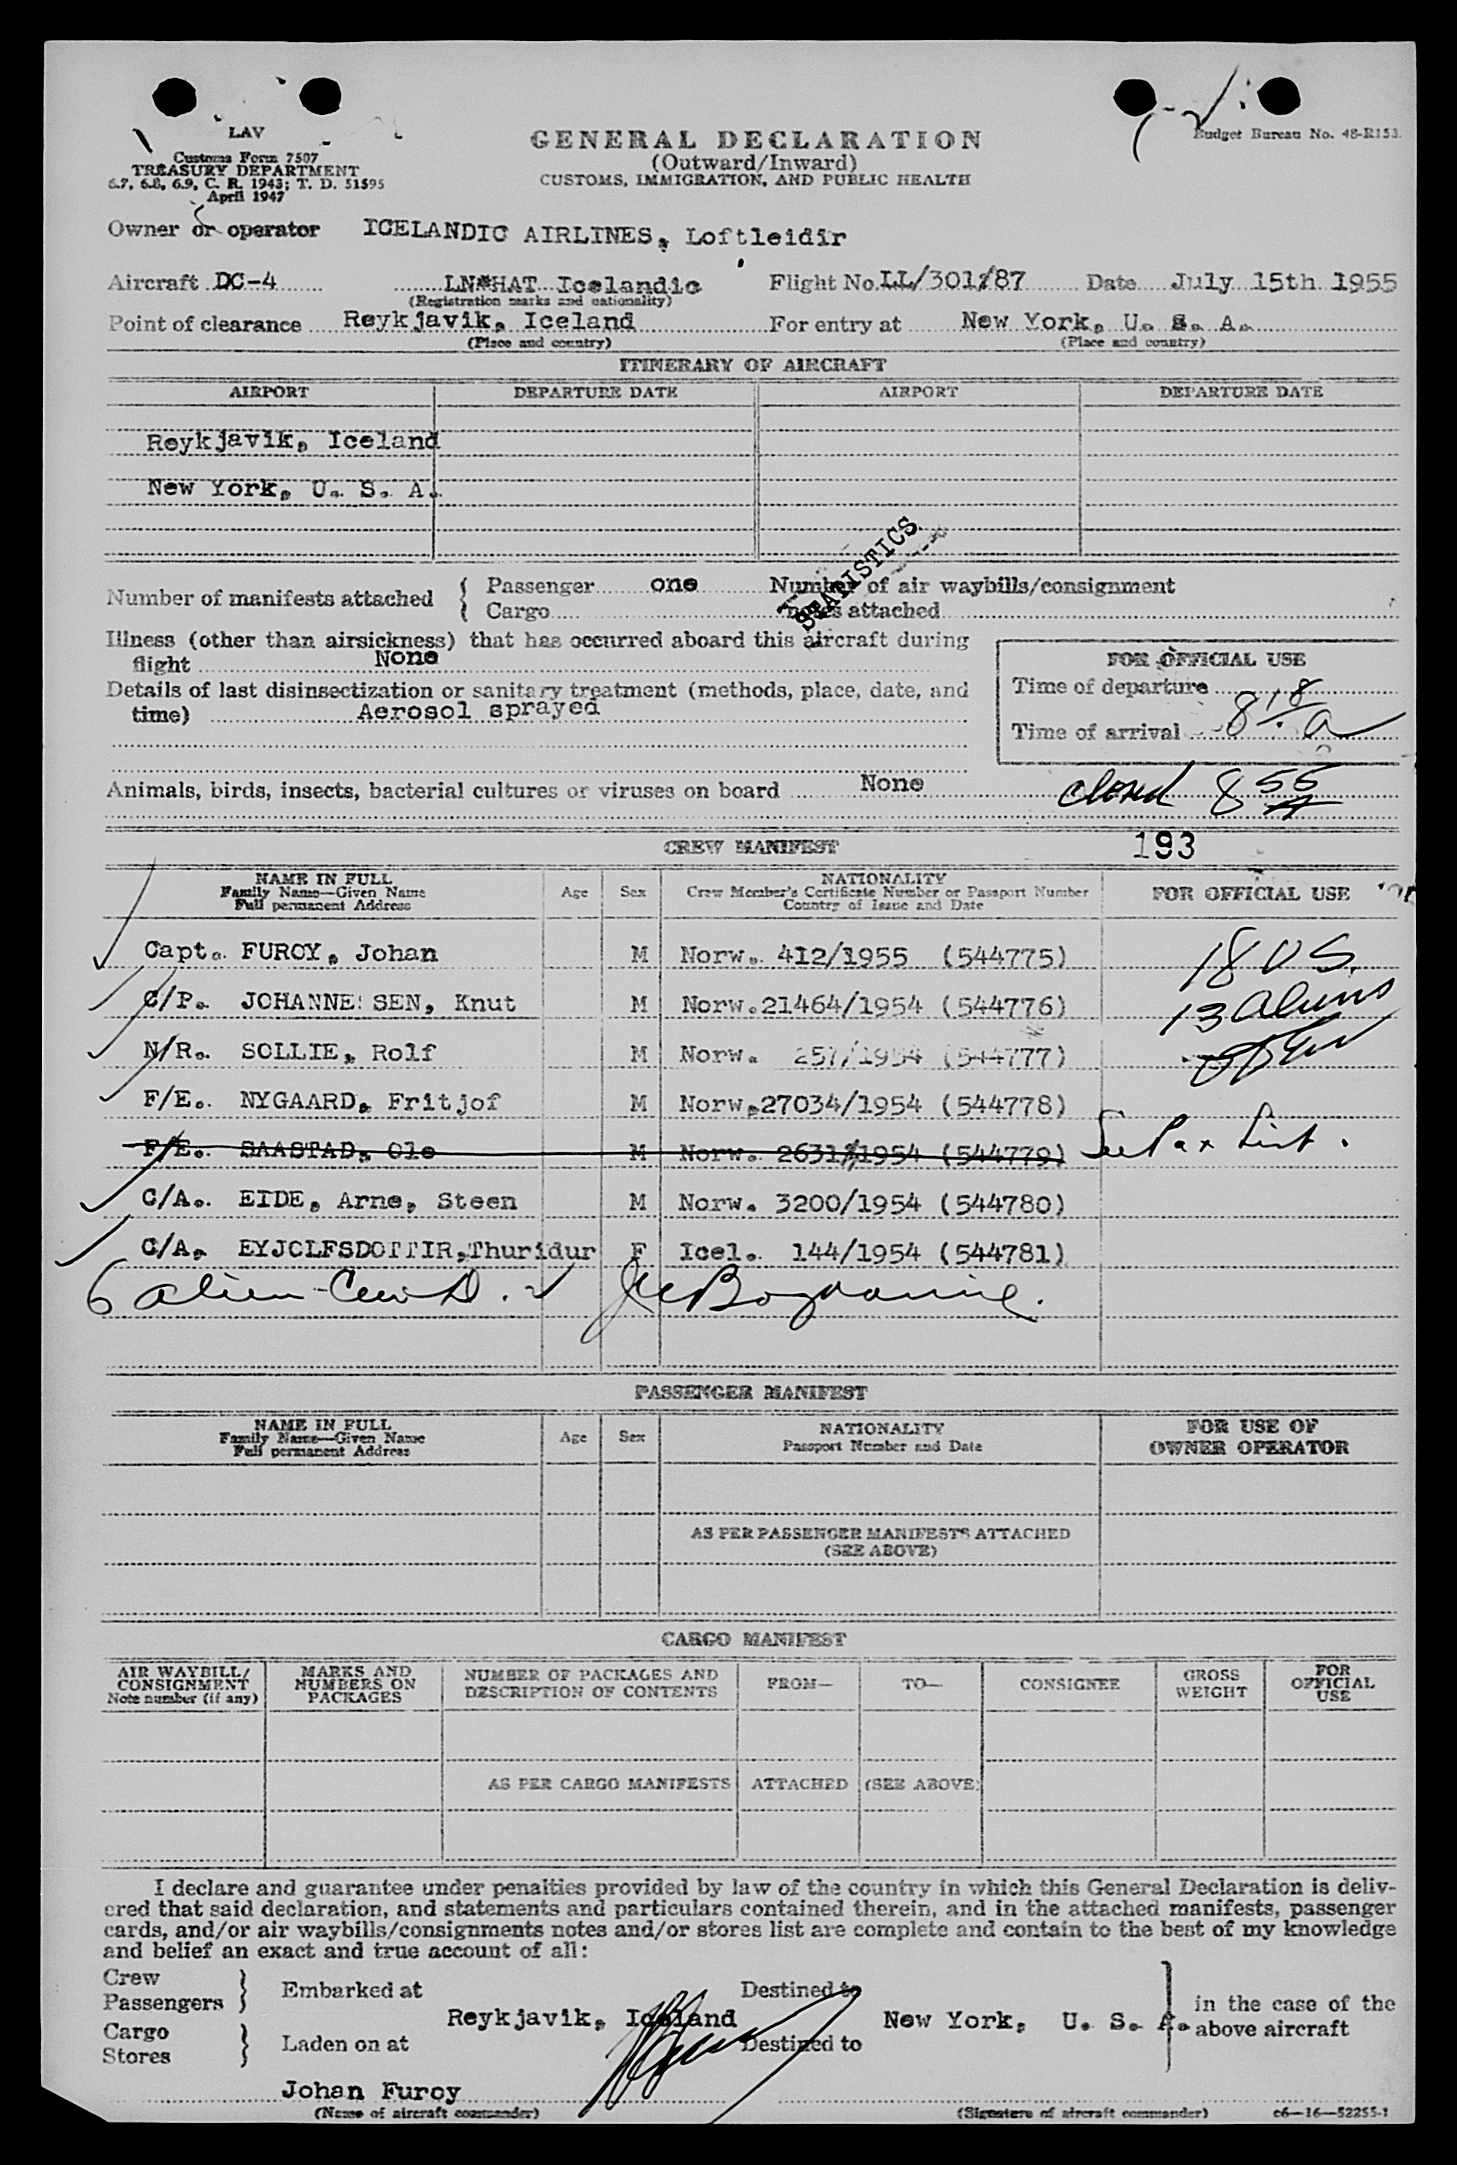 LAV
Customs Form 7507
TREASURY DEPARTMENT
6.7, 6.8, 6.9, C. R. 1943; T. D. 51595
April 1947
GENERAL DECLARATION
(Outward/Inward)
CUSTOMS, IMMIGRATION, AND PUBLIC HEALTH
Budget Bureau No. 48-R153.
Owner or operator ICELANDIC AIRLINES, Loftleidir
Aircraft DC-4 LN*HAT Icelandic Flight No. LL/301/87 Date July 15th 1955
(Registration marks and nationality)
Point of clearance Reykjavik, Iceland For entry at New York, U. S. A.
(Place and country) (Place and country)
ITINERARY OF AIRCRAFT
AIRPORT DEPARTURE DATE AIRPORT DEPARTURE DATE
Reykjavik, Iceland
New York, U. S. A.
STATISTICS
Number of manifests attached { Passenger one Number of air waybills/consignment
{ Cargo notes attached
Illness (other than airsickness) that has occurred aboard this aircraft during
flight None
FOR OFFICIAL USE
Details of last disinsectization or sanitary treatment (methods, place, date, and
time) Aerosol sprayed
Time of departure
Time of arrival 8 18 a
Animals, birds, insects, bacterial cultures or viruses on board None
closed 8 55 A
CREW MANIFEST 193
NAME IN FULL
Family Name—Given Name
Full permanent Address
Age Sex
NATIONALITY
Crew Member's Certificate Number or Passport Number
Country of Issue and Date
FOR OFFICIAL USE
Capt. FUROY, Johan M Norw. 412/1955 (544775) 18 US.
C/P. JOHANNESSEN, Knut M Norw. 21464/1954 (544776) 13 Aliens
N/R. SOLLIE, Rolf M Norw. 257/1954 (544777)
F/E. NYGAARD, Fritjof M Norw. 27034/1954 (544778)
F/E. SAASTAD, Ole M Norw. 2631/1954 (544779) See Pax List.
C/A. EIDE, Arne, Steen M Norw. 3200/1954 (544780)
C/A. EYJOLFSDOTTIR, Thuridur F Icel. 144/1954 (544781)
6 alien
PASSENGER MANIFEST
NAME IN FULL
Family Name—Given Name
Full permanent Address
Age Sex
NATIONALITY
Passport Number and Date
FOR USE OF
OWNER OPERATOR
AS PER PASSENGER MANIFESTS ATTACHED
(SEE ABOVE)
CARGO MANIFEST
AIR WAYBILL/
CONSIGNMENT
Note number (if any)
MARKS AND
NUMBERS ON
PACKAGES
NUMBER OF PACKAGES AND
DESCRIPTION OF CONTENTS
FROM— TO— CONSIGNEE
GROSS
WEIGHT
FOR
OFFICIAL
USE
AS PER CARGO MANIFESTS ATTACHED (SEE ABOVE)
I declare and guarantee under penalties provided by law of the country in which this General Declaration is deliv-
ered that said declaration, and statements and particulars contained therein, and in the attached manifests, passenger
cards, and/or air waybills/consignments notes and/or stores list are complete and contain to the best of my knowledge
and belief an exact and true account of all:
Crew
Passengers } Embarked at Destined to
Reykjavik, Iceland New York, U. S. A.
in the case of the
above aircraft
Cargo
Stores } Laden on at Destined to
Johan Furoy
(Name of aircraft commander) (Signature of aircraft commander) c6—16—52255-1